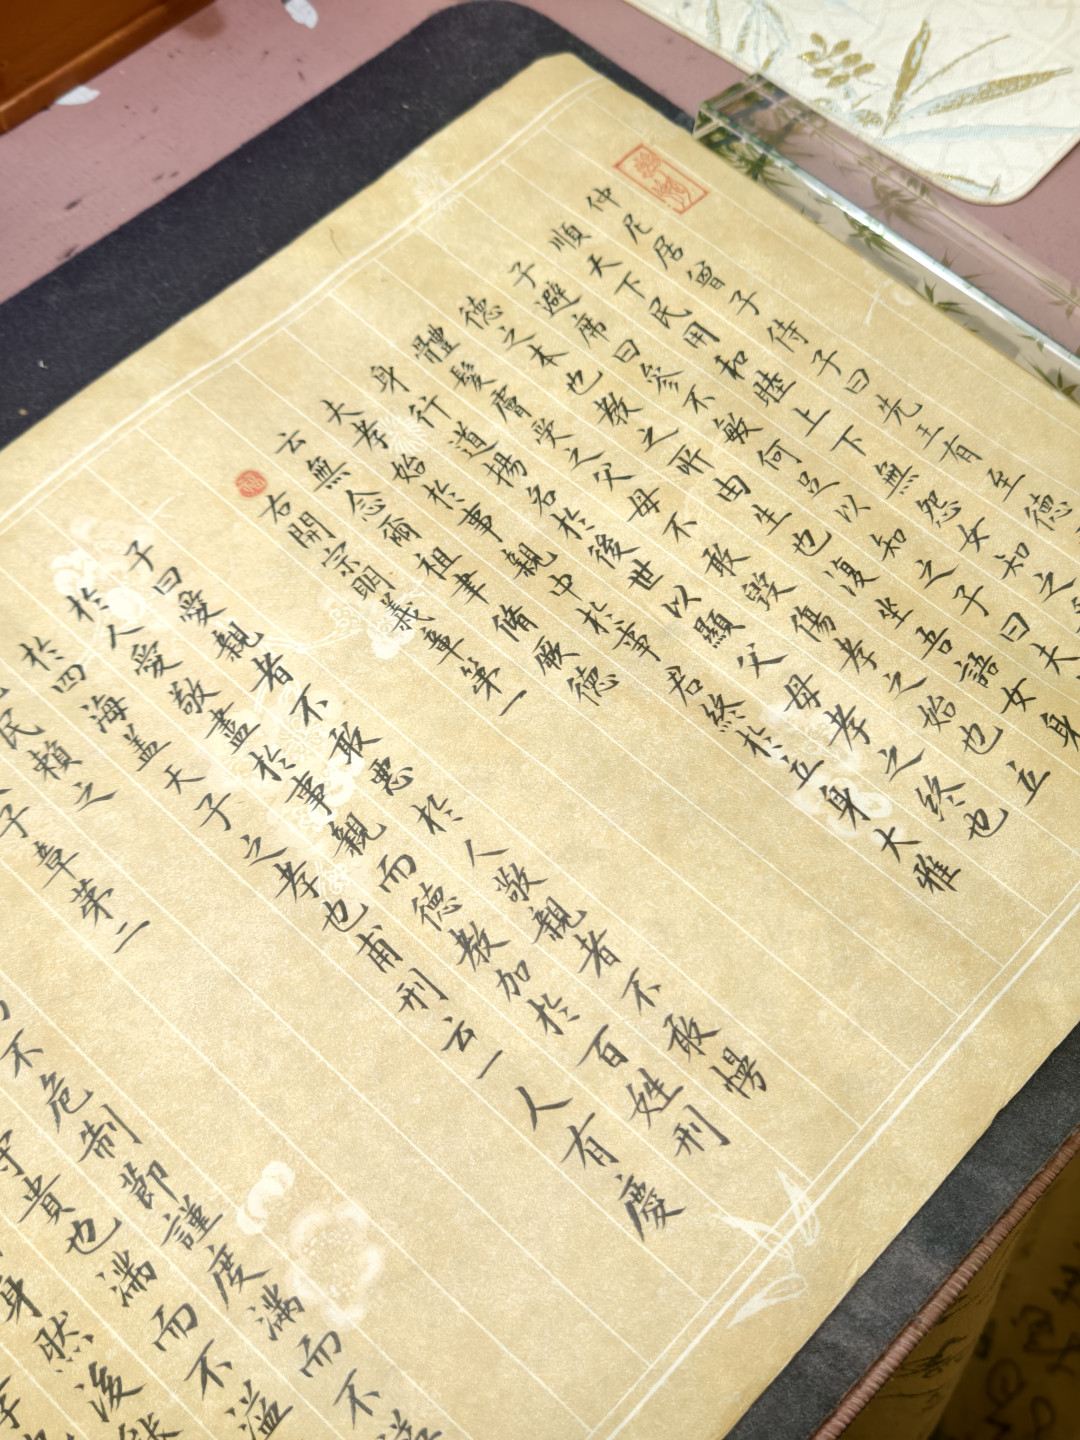 仲尼居曾子侍子曰先王有至德
順天下民用和睦上下無怨女知之
子避席曰參不敏何足以知之子曰夫
德之本也教之所由生也復坐吾語女身
體髮膚受之父母不敢毀傷孝之始也立
身行道揚名於後世以顯父母孝之終也
夫孝始於事親中於事君終於立身大雅
云無念爾祖聿脩厥德
右開宗明義章第一
子曰愛親者不敢惡於人敬親者不敢慢
於人愛敬盡於事親而德教加於百姓刑
於四海盖天子之孝也甫刑云一人有慶
民賴之
子章第二
不危制節謹度滿而不
守貴也滿而不溢
身然後